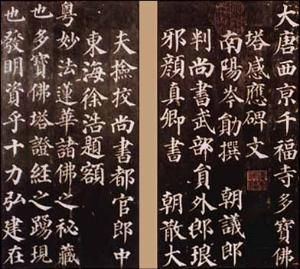 大唐西京千福寺多寶佛
塔感應碑文
南陽岑勛撰 朝議郎
判尚書武部員外郎琅
邪顏真卿書 朝散大
夫撿挍尚書都官郎中
東海徐浩題額
粵妙法蓮華諸佛之秘藏
也多寶佛塔證經之踴現
也發明資乎十力弘建在